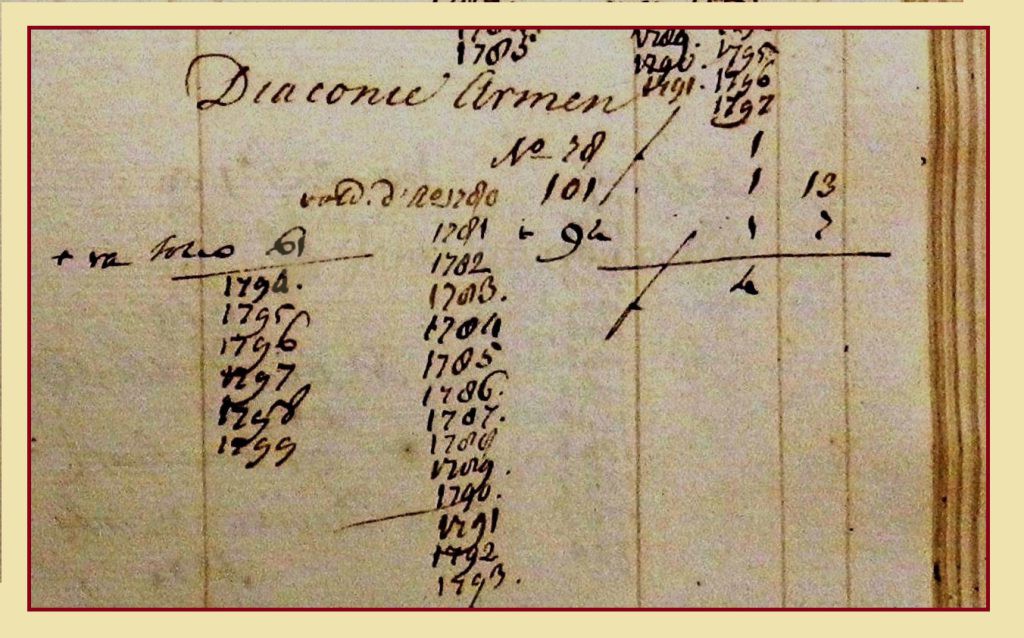 1785. 1789. 1795
1790. 1796
1791. 1797
Diaconie Armen
No 78 1
vold. d' Ao 1780 101 1 13
1781 94 1 7
+ va folio 61 1782 4
1794. 1783.
1795 1784
1796 1785
1797 1786.
1798 1787.
1799 1788
1789.
1790.
1791
1792
1793.